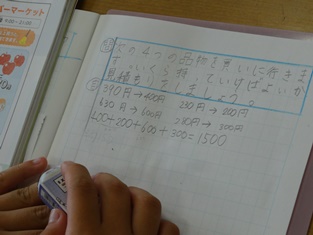 ーパーマーケット
問 次の4つの品物を買いに行きま
す。いくら持っていけばよいか
見積もりをしましょう。
390円→400円 230円→200円
630円→600円 280円→300円
400+200+600+300=1500